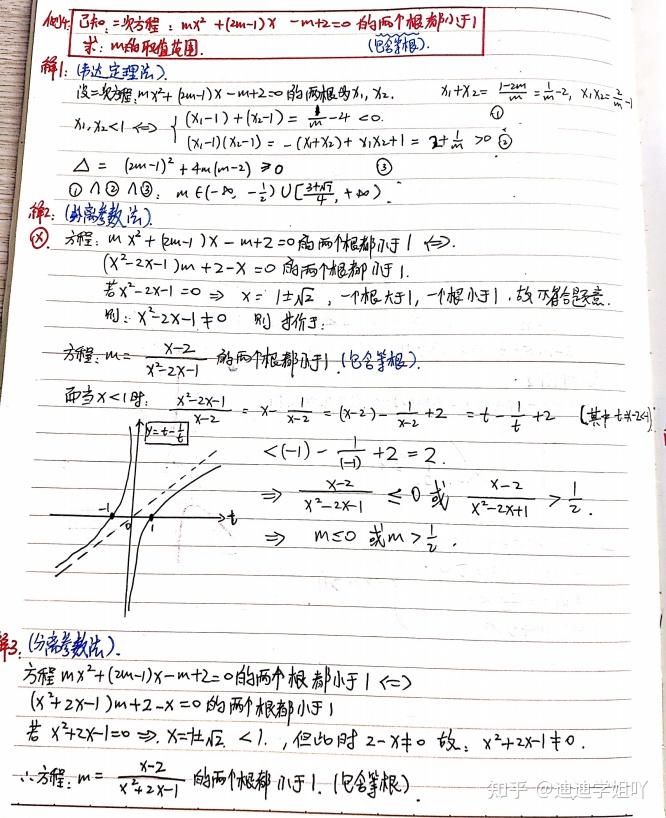 例4: 已知: 二次方程: mx² + (2m-1)x - m+2=0 的两个根都小于1
求: m的取值范围. (包含等根).
解1: (韦达定理法).
设二次方程: mx² + (2m-1)x - m+2=0 的两根为 x₁, x₂. x₁+x₂ = (1-2m)/m = 1/m - 2, x₁x₂ = 2/m - 1
x₁, x₂ < 1 <=> { (x₁-1) + (x₂-1) = 1/m - 4 < 0. ①
(x₁-1)(x₂-1) = -(x₁+x₂) + x₁x₂ + 1 = 2 + 1/m > 0 ②
Δ = (2m-1)² + 4m(m-2) ≥ 0 ③
① ∧ ② ∧ ③: m∈(-∞, -1/2) ∪ [(3+√7)/4, +∞).
解2: (分离参数法).
(×) 方程: mx² + (2m-1)x - m+2=0 的两个根都小于1 <=>.
(x²-2x-1)m + 2-x = 0 的两个根都小于1.
若 x²-2x-1=0 => x = 1±√2, 一个根大于1, 一个根小于1. 故不符合题意.
则: x²-2x-1≠0 则 等价于:
方程: m = (x-2)/(x²-2x-1) 的两个根都小于1. (包含等根).
而当 x<1 时: (x²-2x-1)/(x-2) = x - 1/(x-2) = (x-2) - 1/(x-2) + 2 = t - 1/t + 2 [其中 t=x-2<-1]
y=t-1/t
< (-1) - 1/(-1) + 2 = 2.
-1 0 1 t
=> (x-2)/(x²-2x-1) ≤ 0 或 (x-2)/(x²-2x+1) > 1/2.
=> m≤0 或 m > 1/2.
解3: (分离参数法).
方程 mx² + (2m-1)x - m+2=0 的两个根都小于1 <=>
(x²+2x-1)m + 2-x = 0 的两个根都小于1
若 x²+2x-1=0 => x=-1±√2 < 1. , 但此时 2-x≠0 故: x²+2x-1≠0.
∴ 方程: m = (x-2)/(x²+2x-1) 的两个根都小于1. (包含等根)
知乎 @迪迪学姐吖